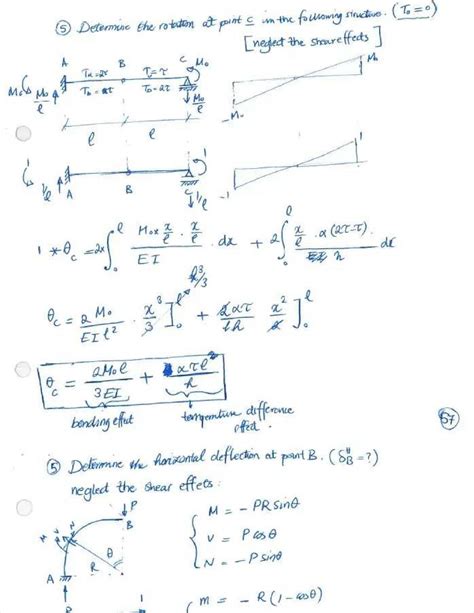 ⑤ Determine the rotation at point C in the following structure. (T₀=0)
[neglect the shear effects]
A B C M₀
Tᵤ=2τ T=τ M₀
M₀ M₀/l M₀/l
l l -M₀
1 1
1/l A B C 1/l
-1
1 * θ_c = 2x ∫₀^l (M₀ x/l · x/l)/EI · dx + 2 ∫₀^l (x/l · α(2τ-τ))/h dx
l³/3
θ_c = 2M₀/EIl² · x³/3 ]₀^l + 2ατ/lh x²/2 ]₀^l
θ_c = 2M₀l/3EI + ατl/h
bending effect temperature difference
effect.
57
⑤ Determine the horizontal deflection at point B. (δ_B^H=?)
neglect the shear effets:
P
B
M = -PR sinθ
V = P cosθ
N = -P sinθ
θ
R
A
P 1
m = -R(1-cosθ)